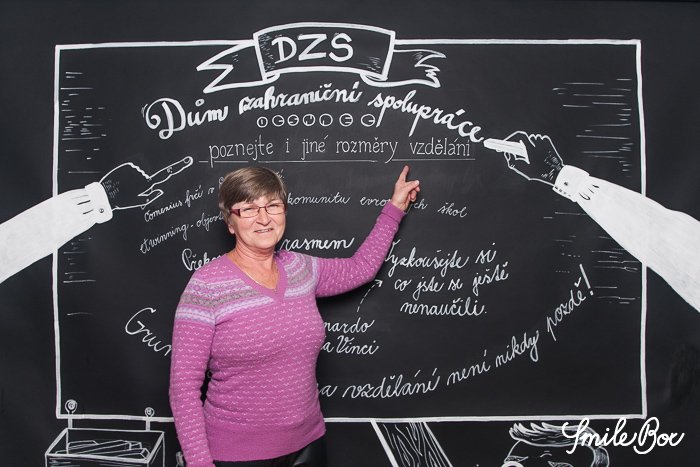 DZS
Dům zahraniční spolupráce
poznejte i jiné rozměry vzdělání
Comenius frčí
komunitu evropských škol
etwinning - objevte
rasmem
Vyzkoušejte si
co jste se ještě
nenaučili.
nardo
a Vinci
a vzdělání není nikdy pozdě!
Smile Box